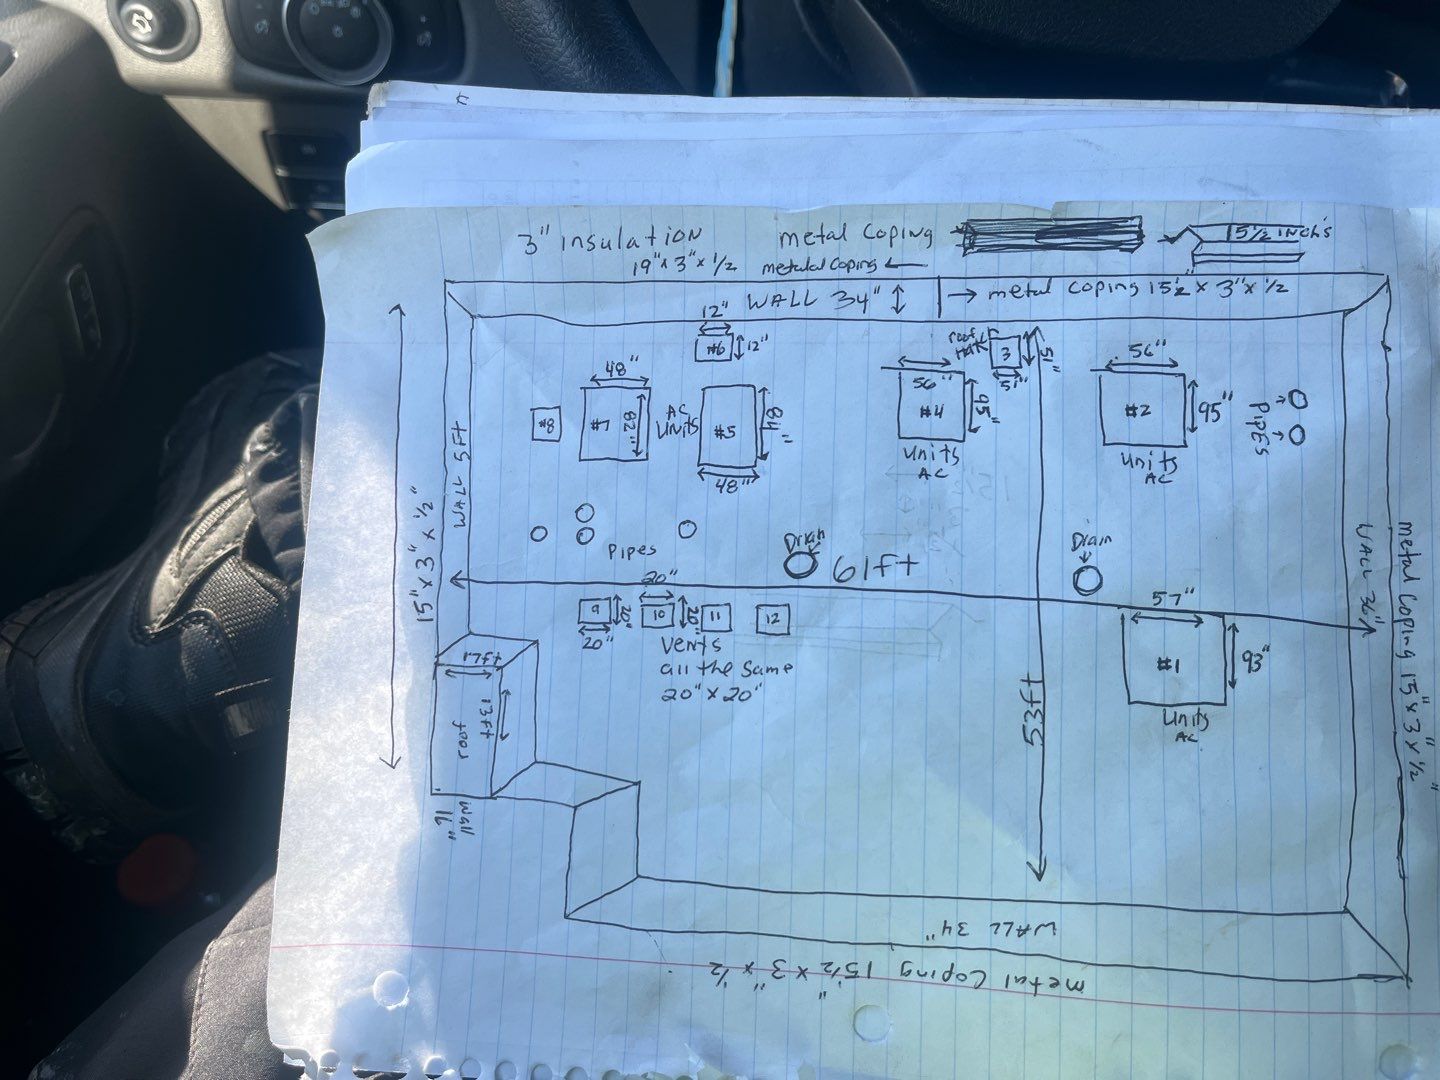 3" Insulation
metal Coping
15 1/2 INCH'S
19" x 3" x 1/2
metalal Coping
WALL 34"
metal Coping 15 1/2" x 3" x 1/2
12"
#6
12"
roof
3
51"
51"
48"
#7
82"
AC
UNITS
#5
84"
48"
#8
56"
#4
95"
Units
AC
56"
#2
95"
Units
AC
PIPES
WALL 5FT
15" x 3" x 1/2"
Pipes
Drain
61ft
Drain
20"
9
20"
20"
10
20"
11
12
Vents
all the Same
20" x 20"
57"
#1
93"
Units
AC
53ft
WALL 36"
metal Coping 15" x 3" x 1/2"
17ft
13ft
roof
wall
WALL 34"
metal Coping 15 1/2" x 3" x 1/2